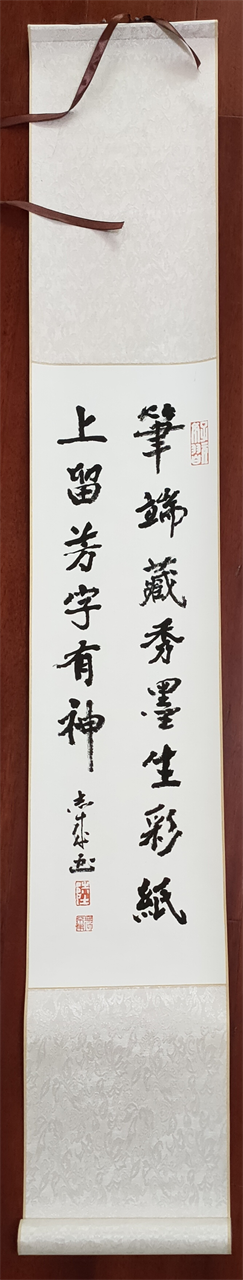 筆端藏秀墨生彩紙
上留芳字有神
志成書